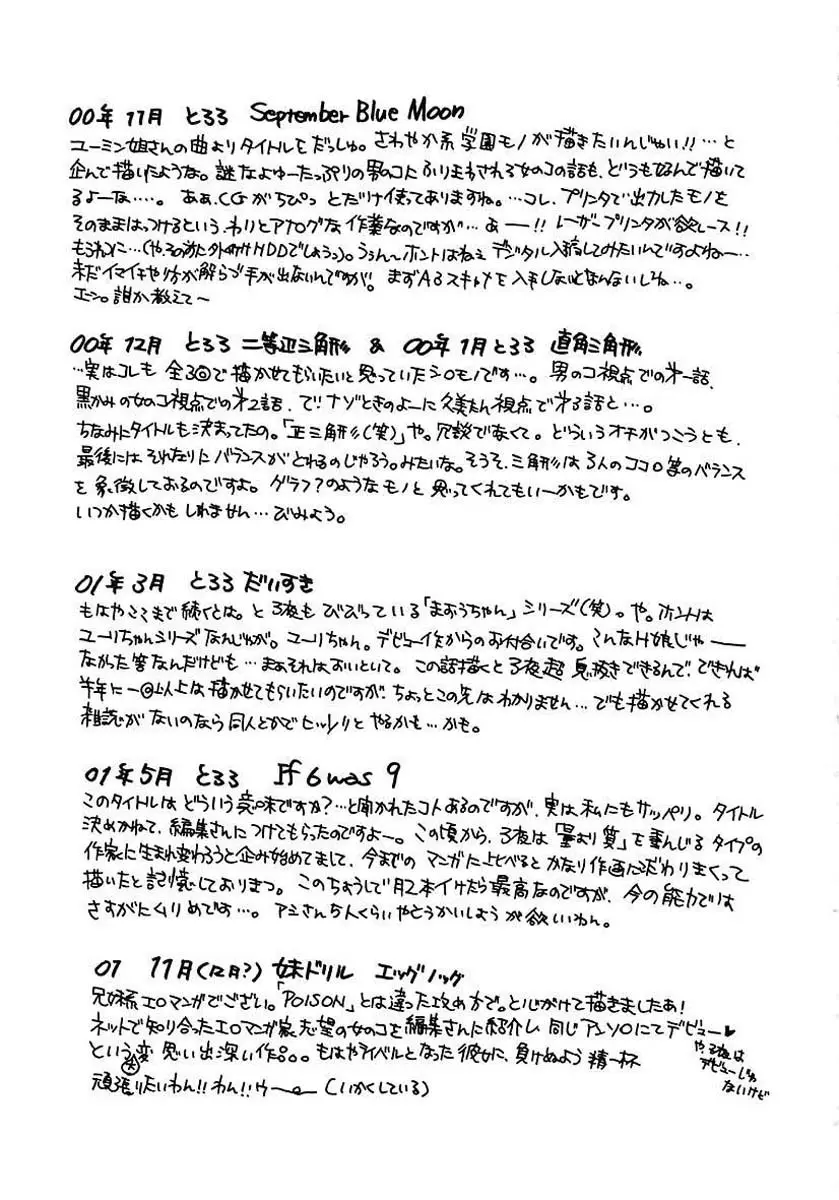 00年11月 とろろ September Blue Moon
ユーミン姐さんの曲よりタイトルをだっしゅ。さわやか系学園モノが描きたいんじゃい!!…と
企んで描いたような。謎なよゆーたっぷりの男のコにふりまわされる女のコの話も、どうもなんで描いて
るよーな…。ああ、CGがちびっとだけ使ってありますね。…コレ、プリンタで出力したモノを
そのままはっつけるという、わりとアナログな作業なのですが…あー!!レーザープリンタが欲しース!!
もうれつに…(や、その前に外付けHDDでしょうっ)。ううん〜ホントはねえデジタル入稿してみたいんですよねー…
未だイマイチやり方が解らず手が出ないんですが。まずA3スキャナを入手しないとなんないしね…。
エーン。誰か教えて〜
00年12月 とろろ 二等辺三角形 & 00年1月とろろ 直角三角形
…実はコレも全3回で描かせてもらいたいと思っていたシロモノです…。男のコ視点での第一話、
黒かみの女のコ視点での第2話、で!!ナゾときのよーに久美たん視点で第3話と…。
ちなみにタイトルも決まってたの。「正三角形(笑)」や。冗談でなくて。どういうオチがつこうとも、
最後にはそれなりにバランスがとれるのじゃろう。みたいな。そうそ、三角形は3人のココロ等のバランス
を象徴しておるのですよ。グラフ?のようなモノと思ってくれてもいーかもです。
いつか描くかもしれません…びみょう。
01年3月 とろろ だいすき
もはやここまで続くとは。と子夜もびびっている「まおうちゃん」シリーズ(笑)。や。ホントは
ユーリちゃんシリーズなんじゃが。ユーリちゃん。デビュー作からのお付合いです。こんなH娘じゃー
なかった筈なんだけども…まぁそれはおいといて。この話描くと子夜超息抜きできるんで、できれば
半年に一回以上は描かせてもらいたいのですが、ちょっとこの先はわかりません…でも描かせてくれる
雑誌がないのなら同人とかでヒッソリとやるかも…かも。
01年5月 とろろ If 6 was 9
このタイトルはどういう意味ですか?…と聞かれたコトあるのですが、実は私にもサッパリ。タイトル
決めかねて、編集さんにつけてもらったのですよー。この頃から、子夜は「量より質」を重んじるタイプの
作家に生まれ変わろうと企み始めてまして、今までのマンガに比べるとかなり作画にこだわりまくって
描いたと記憶しておりまつ。このちょうしで月2本イけたら最高なのですが、今の能力では
さすがにムリめです…。アシさん5人くらいやとうかいしょうが欲しいわん。
01 11月(12月?) 妹ドリル エッグノッグ
兄妹系エロマンガでござい。「POISON」とは違った攻め方で。と心がけて描きましたあ!
ネットで知り合ったエロマンガ家志望の女のコを編集さんに紹介し同じにてデビュー♥
や、子夜は
デビューじゃ
ないけど
という変 思い出深い作品。もはやライバルとなった彼女に、負けぬよう精一杯
頑張りたいわん!!わん!!ウ〜 (いかくしている)